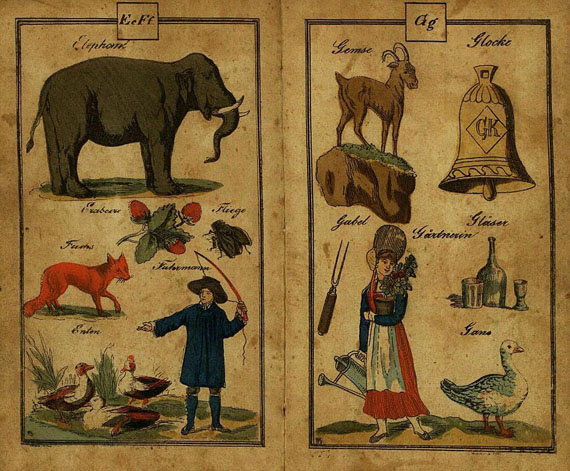 Ee Ff
Elephant
Erdbeere
Fliege
Fuchs
Fuhrmann
Enten
Gg
Gemse
Glocke
GK
Gabel
Gärtnerin
Gläser
Gans